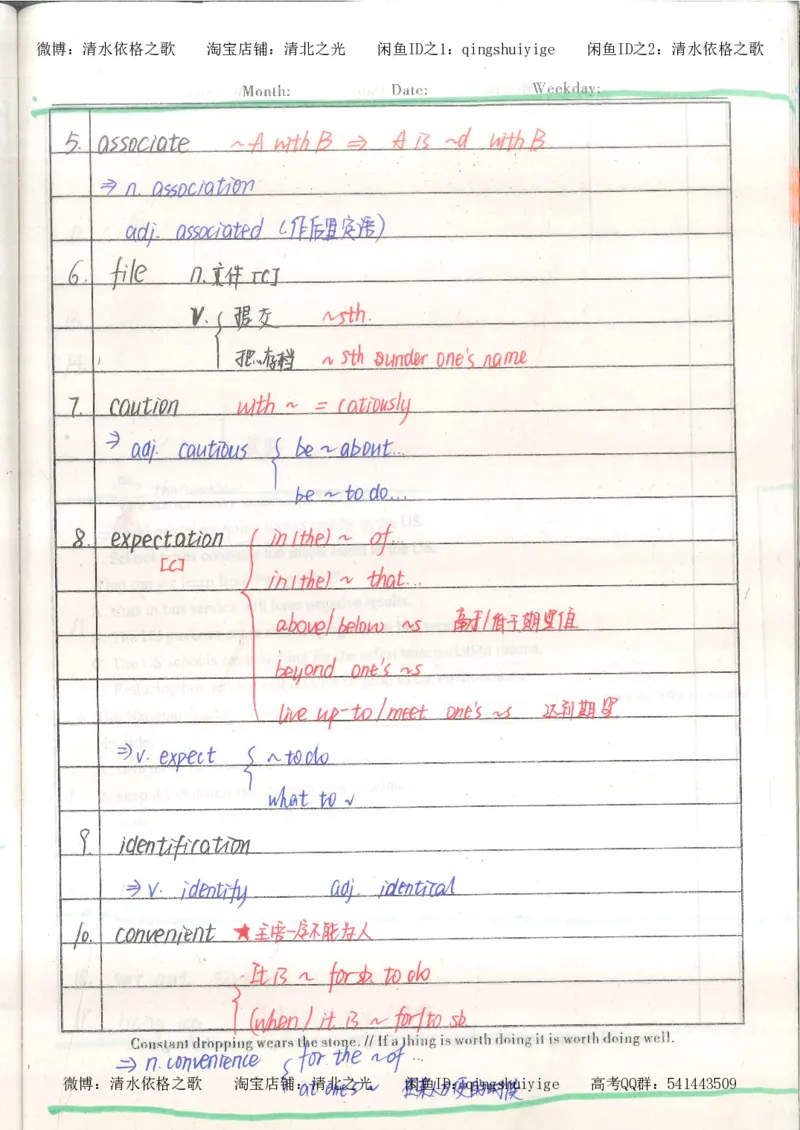 微博：清水依格之歌 淘宝店铺：清北之光 闲鱼ID之1：qingshuiyige 闲鱼ID之2：清水依格之歌
Month: Date: Weekday:
5. associate ~A with B ⇒ A is ~d with B
⇒ n. association
adj. associated (作后置定语)
6. file n.文件 [C]
v. { 提交 ~sth.
把…存档 ~ sth under one's name
7. caution with ~ = catiously
⇒ adj. cautious { be ~ about...
be ~ to do...
8. expectation { in (the) ~ of...
[C] in (the) ~ that...
above/below ~s 高于/低于期望值
beyond one's ~s
live up-to/meet one's ~s 达到期望
⇒ v. expect { ~ to do
what to v
9. identification
⇒ v. identify adj. identical
10. convenient ★主语一定不能为人
{ It is ~ for sb. to do
(when) it is ~ for/to sb
Constant dropping wears the stone. // If a thing is worth doing it is worth doing well.
⇒ n. convenience { for the ~ of ...
at one's ~ 在某人方便的时候
微博：清水依格之歌 淘宝店铺：清北之光 闲鱼ID：qingshuiyige 高考QQ群：541443509